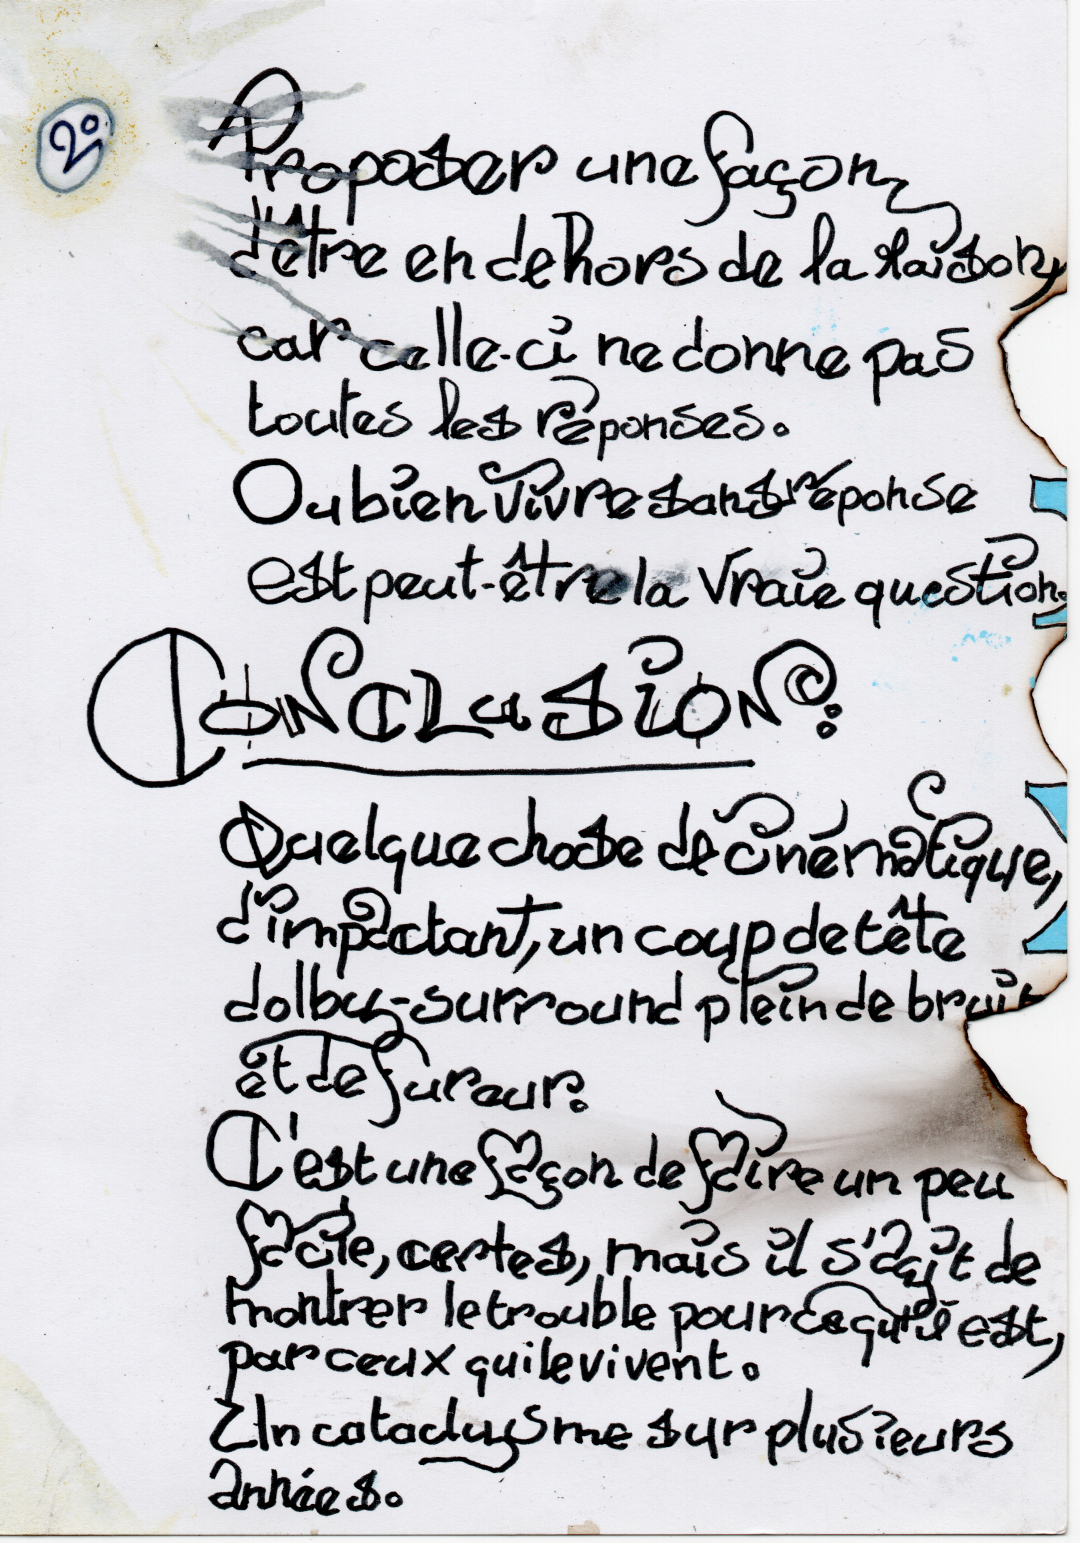 2°
Proposer une façon
d'être en dehors de la raison,
car celle-ci ne donne pas
toutes les réponses.
Ou bien vivre sans réponse
est peut-être la vraie question.
CONCLUSION:
Quelque chose de cinématique,
d'impactant, un coup de tête
dolby-surround plein de bruit
et de fureur.
C'est une façon de faire un peu
facile, certes, mais il s'agit de
montrer le trouble pour ce qu'il est,
par ceux qui le vivent.
Un cataclysme sur plusieurs
années.